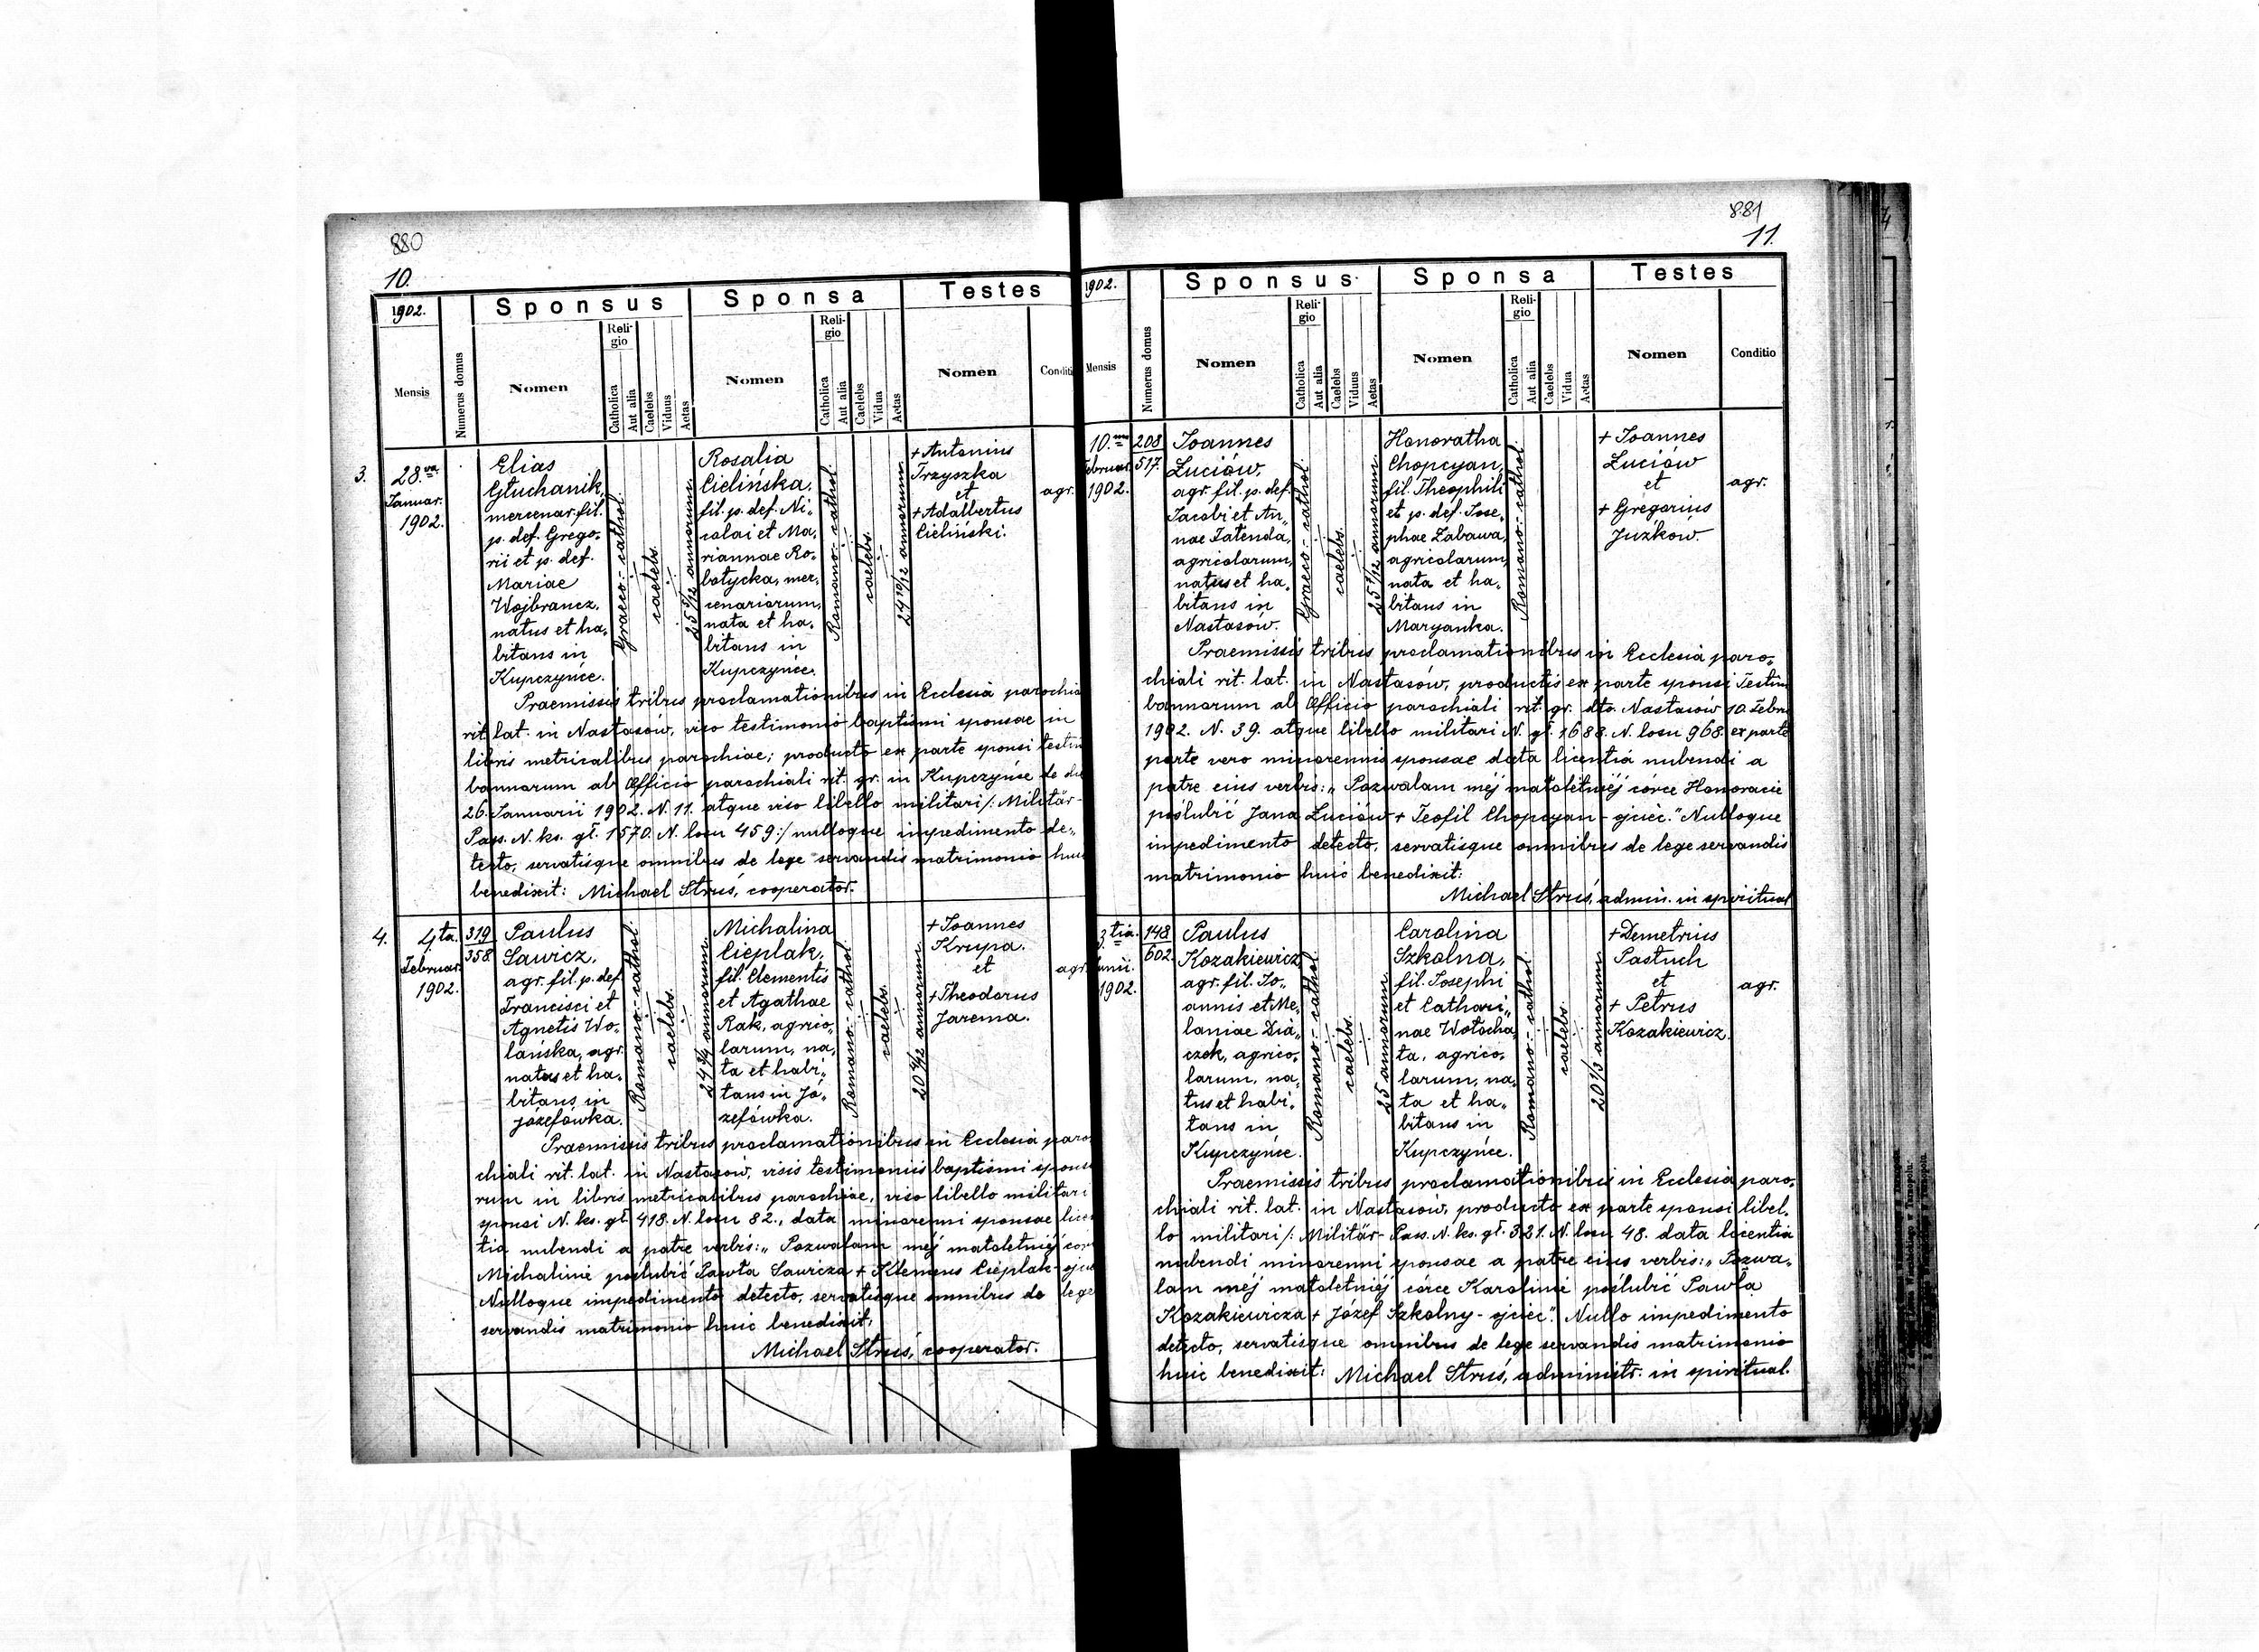 880
10.
1902.
Sponsus
Sponsa
Testes
Mensis
Numerus domus
Nomen
Religio
Catholica
Aut alia
Caelebs
Viduus
Aetas
Nomen
Religio
Catholica
Aut alia
Caelebs
Vidua
Aetas
Nomen
Conditi
3.
28.va
Januar.
1902.
Elias
Głuchanik,
mercenar. fil.
p. def. Grego-
rii et p. def.
Mariae
Wojbrancz,
natus et ha-
bitans in
Kupczyńce.
Graeco-cathol.
caelebs.
25 5/12 annorum
Rosalia
Cielińska,
fil. p. def. Ni-
colai et Ma-
riannae Ro-
botycka, mer-
cenariorum,
nata et ha-
bitans in
Kupczyńce.
Romano-cathol.
caelebs.
24 10/12 annorum
+ Antonius
Trzyszka
et
+ Adalbertus
Cieliński.
agr.
Praemissis tribus proclamationibus in Ecclesia parochia
rit. lat. in Nastasów, viso testimonio baptismi sponsae in
libris metricalibus parochiae; producto ex parte sponsi testim
bannorum ab Officio parochiali rit. gr. in Kupczyńce de
26. Januarii 1902. N. 11. atque viso libello militari /: Militär-
Pass. N. ks. gł. 1570. N. losu 459 :/ nulloque impedimento de-
tecto, servatisque omnibus de lege servandis matrimonio hui
benedixit: Michael Struś, cooperator.
4.
4ta.
Februar.
1902.
319
358
Paulus
Sawicz,
agr. fil. p. def
Francisci et
Agnetis Wo-
lańska, agr.
natus et ha-
bitans in
Józefówka.
Romano-cathol.
caelebs.
annorum
Michalina
Cieplak,
fil. Clementis
et Agathae
Rak, agrico-
larum, na-
ta et habi-
tans in Jó-
zefówka.
Romano-cathol.
caelebs.
annorum
+ Joannes
Krupa.
et
+ Theodorus
Jarema.
agr
Praemissis tribus proclamationibus in Ecclesia paro
chiali rit. lat. in Nastasów, visis testimoniis baptismi sponso
rum in libris metricalibus parochiae, viso libello militari
sponsi N. ks. gł. 418. N. losu 82., data minorenni sponsae lice
tia nubendi a patre verbis: „Pozwalam méj małoletniéj cór
Michalinie poślubić Pawła Sawicza + Klemens Cieplak - ojci
Nulloque impedimento detecto, servatisque omnibus de lege
servandis matrimonio huic benedixit,
Michael Struś, cooperator.
881
11.
1902.
Sponsus
Sponsa
Testes
Mensis
Numerus domus
Nomen
Religio
Catholica
Aut alia
Caelebs
Viduus
Aetas
Nomen
Religio
Catholica
Aut alia
Caelebs
Vidua
Aetas
Nomen
Conditio
10.
ebruar.
1902.
208
517.
Joannes
Łuciów,
agr. fil. p. def.
Jacobi et An-
nae Tatenda,
agricolarum,
natus et ha-
bitans in
Nastasów.
Graeco-cathol.
caelebs.
annorum
Honoratha
Chopcyan,
fil. Theophili
et p. def. Jose-
phae Zabawa,
agricolarum,
nata et ha-
bitans in
Maryanka.
Romano-cathol.
+ Joannes
Łuciów
et
+ Gregorius
Juźków.
agr.
Praemissis tribus proclamationibus in Ecclesia paro-
chiali rit. lat. in Nastasów, productis ex parte sponsi Testim
bannorum ab Officio parochiali rit. gr. dto. Nastasów 10. Febru
1902. N. 39. atque libello militari N. gł. 1688. N. losu 968. ex parte
parte vero minorennis sponsae data licentia nubendi a
patre eius verbis: „Pozwalam méj małoletniéj córce Honoracie
poślubić Jana Łuciów + Teofil Chopcyan - ojciec." Nulloque
impedimento detecto, servatisque omnibus de lege servandis
matrimonio huic benedixit:
Michael Struś, admin. in spiritual
3.tia.
unii.
1902.
148
602.
Paulus
Kozakiewicz
agr. fil. Jo-
annis et Me-
laniae Dia-
czok, agrico-
larum, na-
tus et habi-
tans in
Kupczyńce.
Romano-cathol.
caelebs.
25 annorum
Carolina
Szkolna,
fil. Josephi
et Cathari-
nae Wołocha-
ta, agrico-
larum, na-
ta et ha-
bitans in
Kupczyńce.
Romano-cathol.
caelebs.
20 1/3 annorum
+ Demetrius
Pastuch
et
+ Petrus
Kozakiewicz.
agr.
Praemissis tribus proclamationibus in Ecclesia paro-
chiali rit. lat. in Nastasów, producto ex parte sponsi libel-
lo militari /: Militär-Pass. N. ks. gł. 321. N. losu 48. data licentia
nubendi minorenni sponsae a patre eius verbis: „Pozwa-
lam méj małoletniéj córce Karolinie poślubić Pawła
Kozakiewicza + Józef Szkolny - ojciec." Nullo impedimento
detecto, servatisque omnibus de lege servandis matrimonio
huic benedixit: Michael Struś, administr. in spiritual.